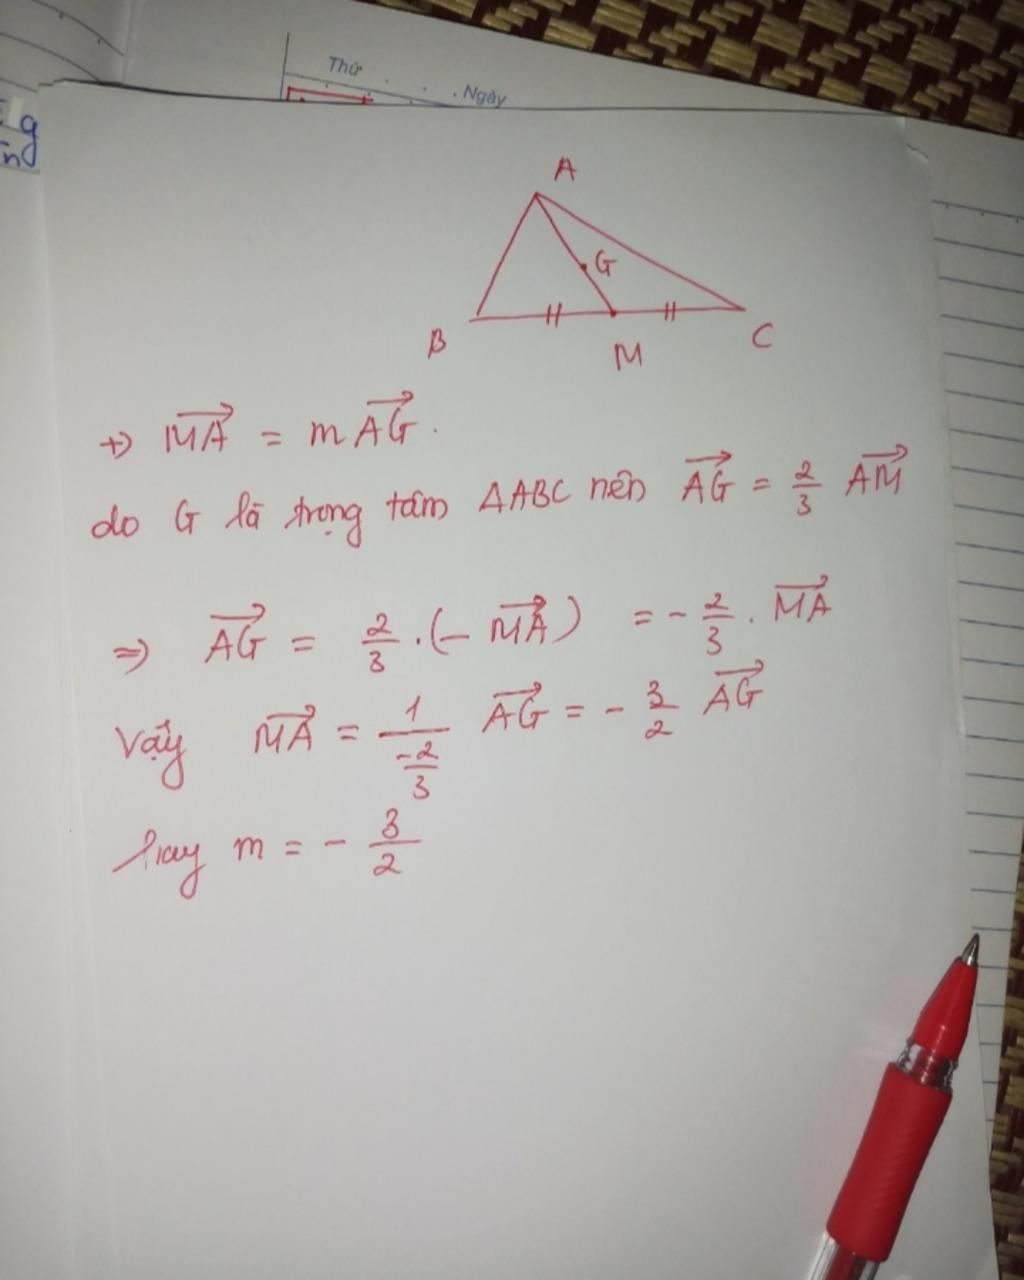 Thứ
Ngày
g
n
A
G
B
M
C
+) $\overrightarrow{MA} = m\overrightarrow{AG}$.
do G là trọng tâm ΔABC nên $\overrightarrow{AG} = \frac{2}{3} \overrightarrow{AM}$
=> $\overrightarrow{AG} = \frac{2}{3} . (- \overrightarrow{MA}) = - \frac{2}{3} . \overrightarrow{MA}$
Vậy $\overrightarrow{MA} = \frac{1}{\frac{-2}{3}} \overrightarrow{AG} = - \frac{3}{2} \overrightarrow{AG}$
hay $m = - \frac{3}{2}$